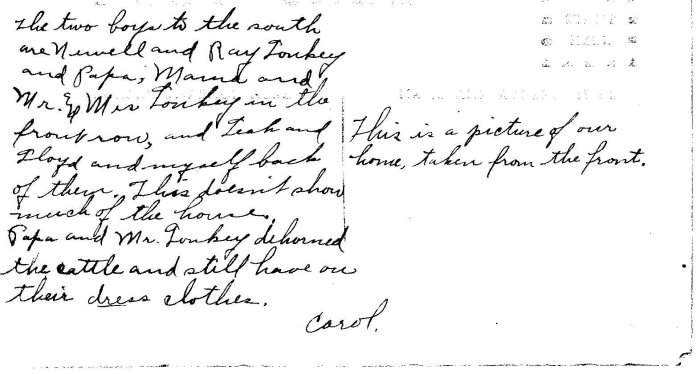 The two boys to the south
are Newell and Ray Tonkey
and Papa, Mama and
Mr. & Mrs Tonkey in the
front row, and Leah and
Floyd and myself back
of them. This doesn't show
much of the house.
Papa and Mr. Tonkey dehorned
the cattle and still have on
their dress clothes.
Carol.
This is a picture of our
home, taken from the front.